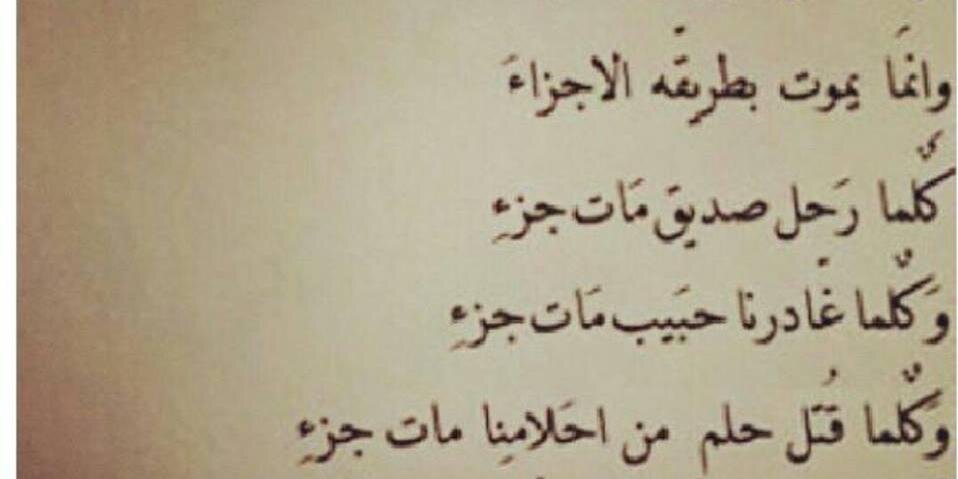 وانمَا يموت بطريقَه الاجزاءَ
كُلّما رَحل صديق مَات جزءِ
وَكُلّما غَادرنا حبَيب مَات جزءِ
وَكُلّما قُتل حلم من احَلامِنا مات جزءِ